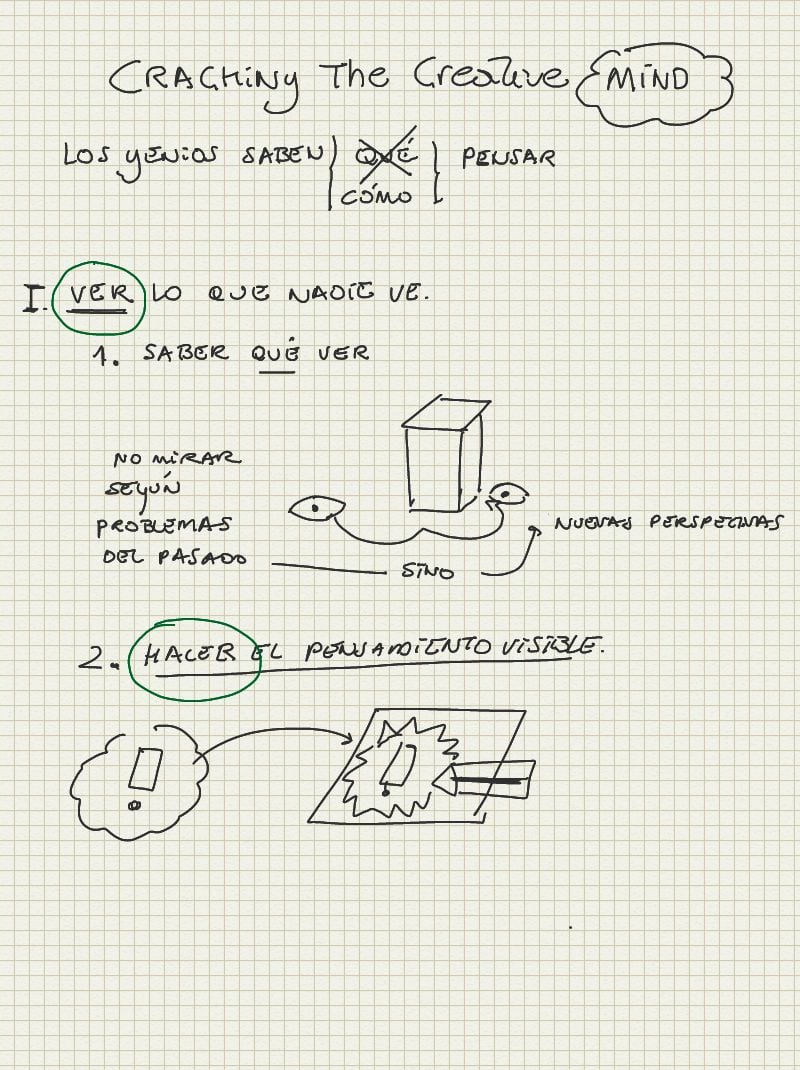 CRACKINg THE CREATIVE MIND
LOS gENIOS SABEN QUÉ PENSAR
CÓMO
I. VER LO QUE NADIE VE.
1. SABER QUÉ VER
NO MIRAR
SEgÚN
PROBLEMAS
DEL PASADO
SINO
NUEVAS PERSPECTIVAS
2. HACER EL PENSAMIENTO VISIBLE.